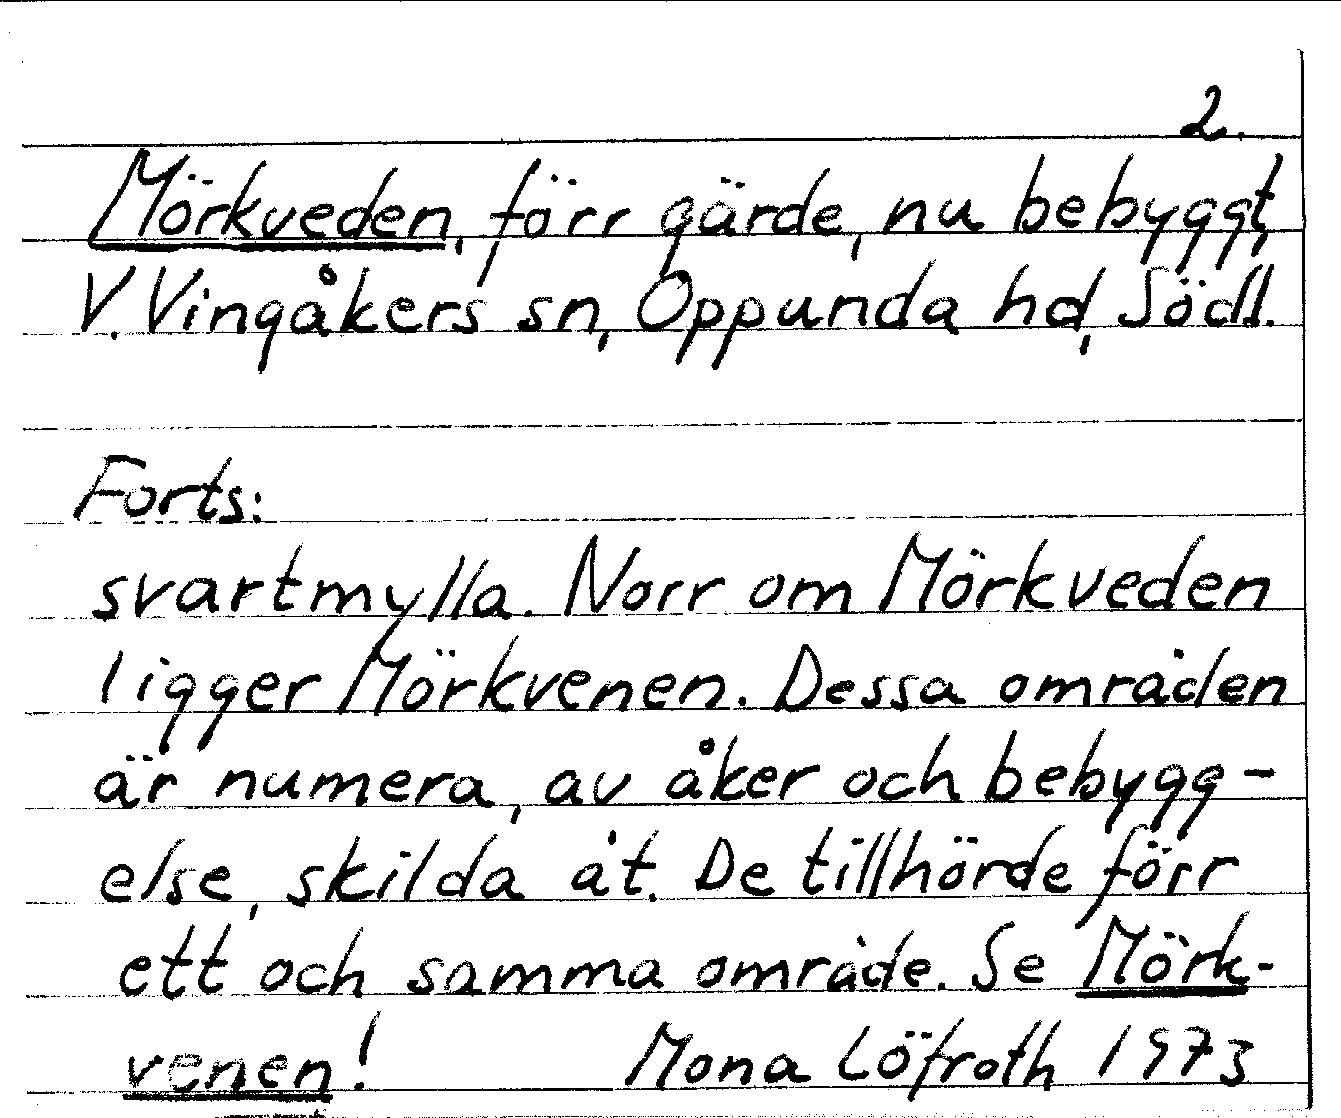 2.
Mörkveden, förr gärde, nu bebyggt,
V. Vingåkers sn, Oppunda hd, Södl.
Forts:
svartmylla. Norr om Mörkveden
ligger Mörkvenen. Dessa områden
är numera, av åker och bebygg-
else, skilda åt. De tillhörde förr
ett och samma område. Se Mörk-
venen! Mona Löfroth 1973